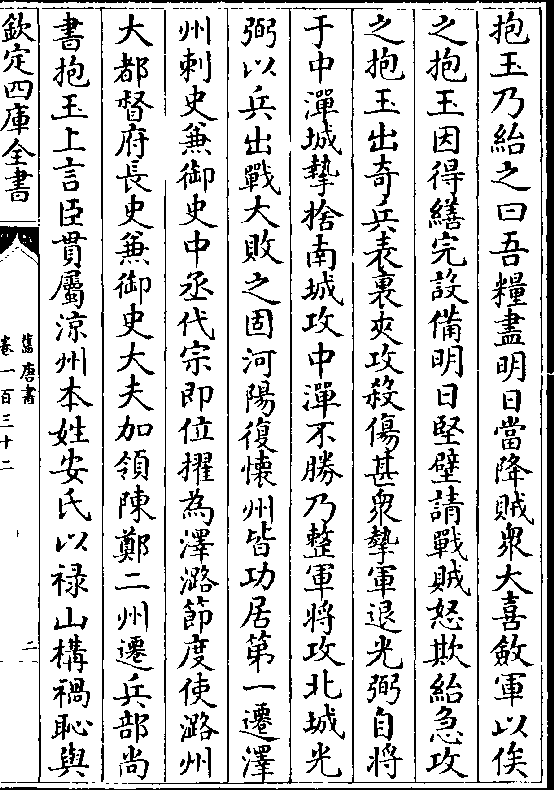 抱玉乃紿之曰吾糧盡明日當降賊衆大喜斂軍以俟
之抱玉因得繕完設備明日堅壁請戰賊怒欺紿急攻
之抱玉出奇兵表裏夾攻殺傷甚衆摯軍退光弼自將
于中潬城摯捨南城攻中潬不勝乃整軍將攻北城光
弼以兵出戰大敗之固河陽復懷州皆功居第一遷澤
州刺史兼御史中丞代宗即位擢為澤潞節度使潞州
大都督府長史兼御史大夫加領陳鄭二州遷兵部尚
書抱玉上言臣貫屬涼州本姓安氏以禄山構禍恥與
欽定四庫全書
舊唐書
卷一百三十二
二